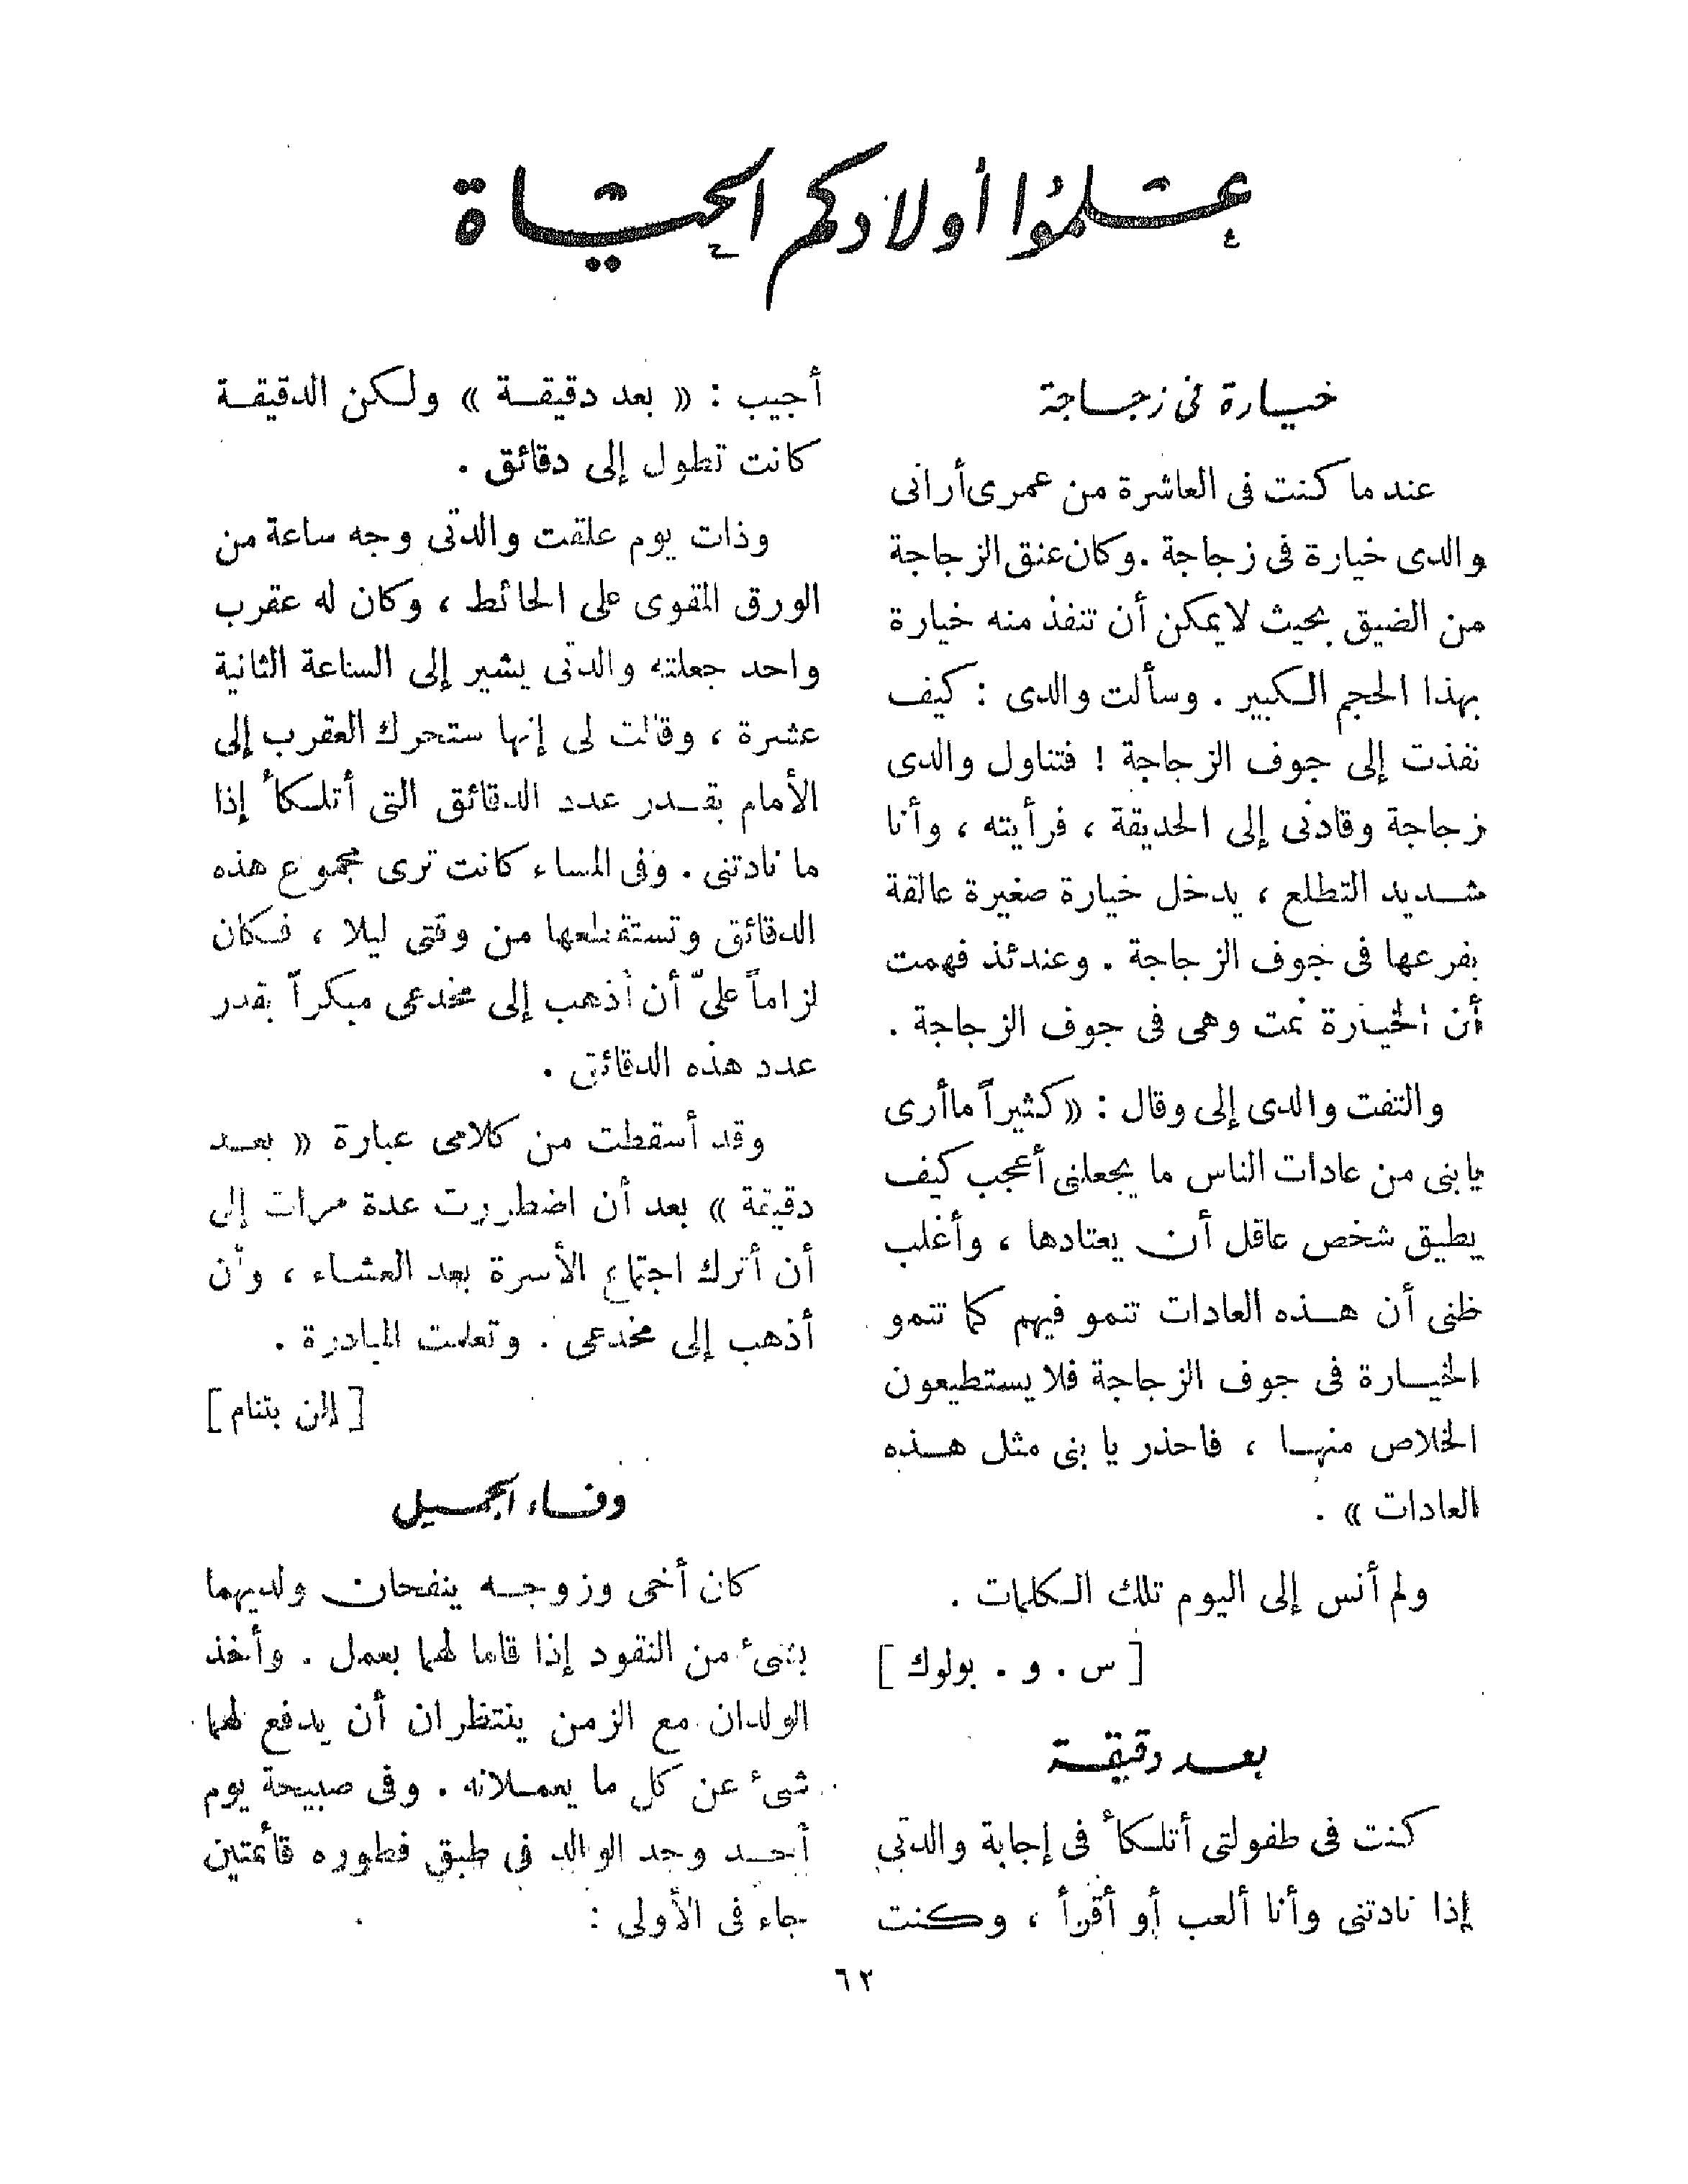 علموا أولادكم الحياة
خيارة فى زجاجة
عند ما كنت فى العاشرة من عمرى أرانى
والدى خيارة فى زجاجة . وكان عنق الزجاجة
من الضيق بحيث لا يمكن أن تنفذ منه خيارة
بهذا الحجم الكبير . وسألت والدى : كيف
نفذت إلى جوف الزجاجة ! فتناول والدى
زجاجة وقادنى إلى الحديقة ، فرأيته ، وأنا
شديد التطلع ، يدخل خيارة صغيرة عالقة
بفرعها فى جوف الزجاجة . وعندئذ فهمت
أن الخيارة نمت وهى فى جوف الزجاجة .
والتفت والدى إلى وقال : « كثيراً ما أرى
يا بنى من عادات الناس ما يجعلنى أعجب كيف
يطيق شخص عاقل أن يعتادها ، وأغلب
ظنى أن هذه العادات تنمو فيهم كما تنمو
الخيارة فى جوف الزجاجة فلا يستطيعون
الخلاص منها ، فاحذر يا بنى مثل هذه
العادات » .
ولم أنس إلى اليوم تلك الكلمات .
[ س . و . بولوك ]
بعد دقيقة
كنت فى طفولتى أتلكأ فى إجابة والدتى
إذا نادتنى وأنا ألعب أو أقرأ ، وكنت
أجيب : « بعد دقيقة » ولكن الدقيقة
كانت تطول إلى دقائق .
وذات يوم علقت والدتى وجه ساعة من
الورق المقوى على الحائط ، وكان له عقرب
واحد جعلته والدتى يشير إلى الساعة الثانية
عشرة ، وقالت لى إنها ستحرك العقرب إلى
الأمام بقدر عدد الدقائق التى أتلكأ إذا
ما نادتنى . وفى المساء كانت ترى مجموع هذه
الدقائق وتستقطعها من وقتى ليلا ، فكان
لزاماً علىّ أن أذهب إلى مخدعى مبكراً بقدر
عدد هذه الدقائق .
وقد أسقطت من كلامى عبارة « بعد
دقيقة » بعد أن اضطررت عدة مرات إلى
أن أترك اجتماع الأسرة بعد العشاء ، وأن
أذهب إلى مخدعى . وتعلمت المبادرة .
[ إلن بتنام ]
وفاء الجميل
كان أخى وزوجه ينفحان ولديهما
بشىء من النقود إذا قاما لهما بعمل . وأخذ
الولدان مع الزمن ينتظران أن يدفع لهما
شىء عن كل ما يعملانه . وفى صبيحة يوم
أحد وجد الوالد فى طبق فطوره قائمتين
جاء فى الأولى :
٦٢